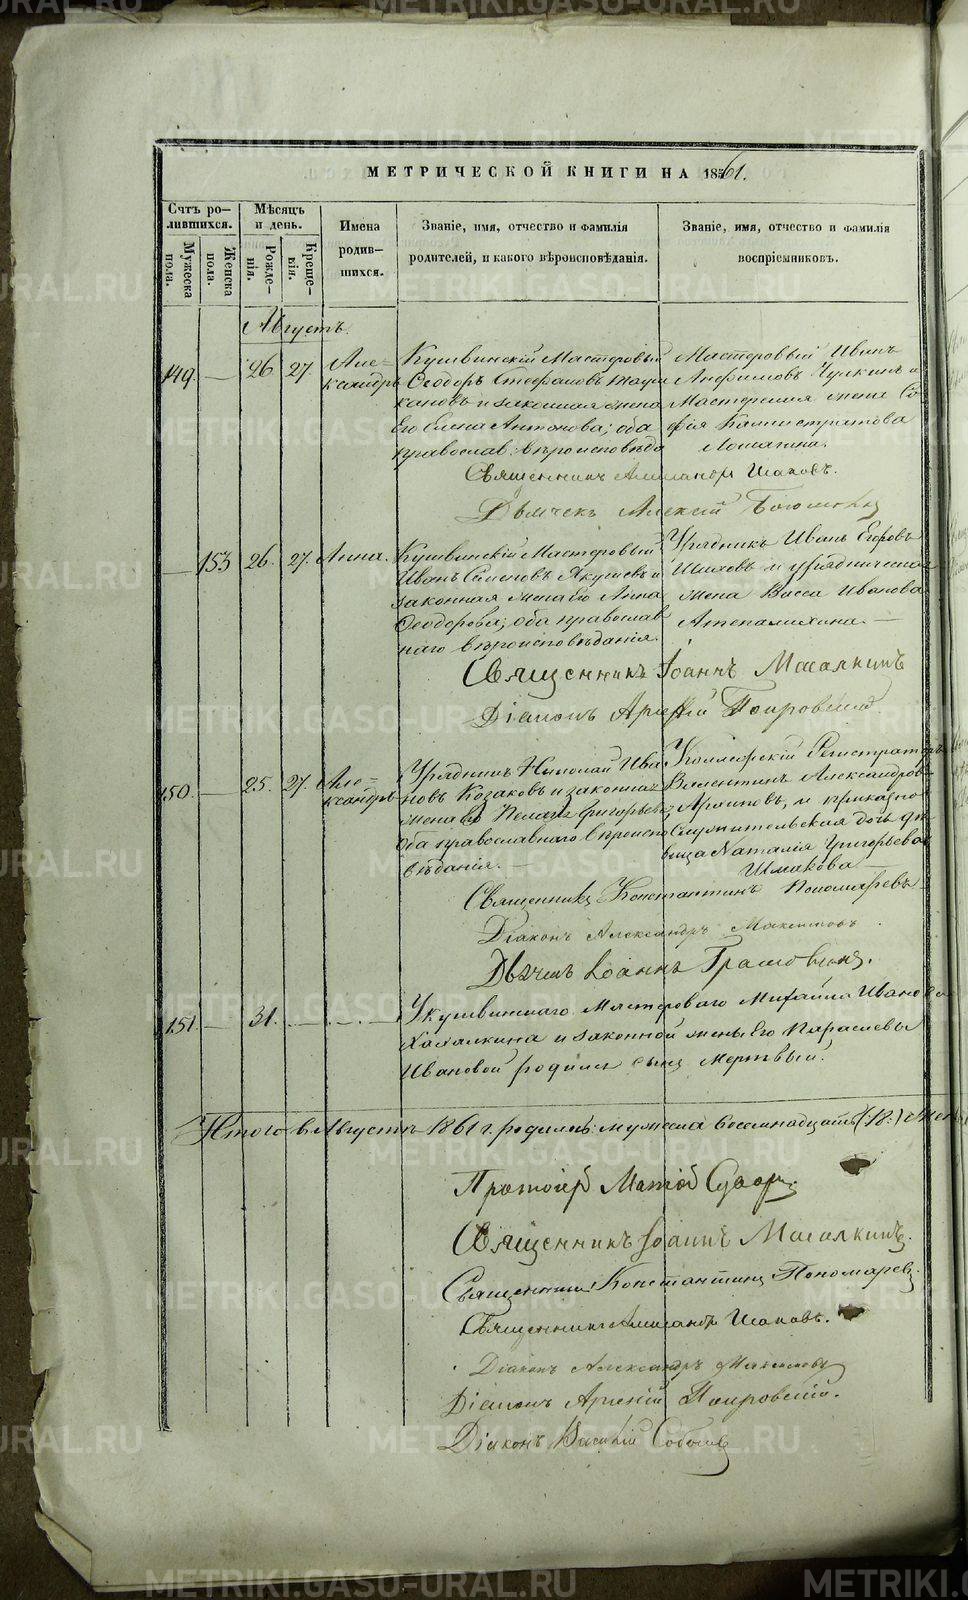 МЕТРИЧЕСКОЙ КНИГИ НА 1861.
Счтъ ро-
лившихся.
Мужеска
пола.
Женска
пола.
Мѣсяцъ
и день.
Рожде-
нія.
Креще-
нія.
Имена
родив-
шихся.
Званіе, имя, отчество и фамилія
родителей, и какого вѣроисповѣданія.
Званіе, имя, отчество и фамилія
воспріемниковъ.
Августъ.
149. — 26 27. Але-
ксандръ
Кушвинскій Мастеровый
Ѳеодоръ Стефановъ
кановъ и законная жена
Его Елена Антонова; оба
православ: вѣроисповѣда
Мастеровый Иванъ
Анфимовъ Чулкинъ и
Мастерская жена Со
фія Калистратова
Ломагина.
Священникъ Александръ Исаковъ.
Дьячекъ Алексій
— 153 26. 27. Анна.
Кушвинскій Мастеровый
Иванъ Симеоновъ Якушевъ и
законная жена Его Анна
Ѳеодорова; оба православ
наго вѣроисповѣданія.
Урядникъ Иванъ Егоровъ
Шиховъ и урядническая
жена Васса Иванова
—
Священникъ Іоаннъ Масалкинъ
Діаконъ Арсеній Покровскій
150. — 25. 27. Але-
ксандръ
Урядникъ Николай Ива
новъ Козаковъ и законная
жена его Пелагія Григорьева,
оба православнаго вѣроиспо
вѣданія. —
Коллежскій Регистраторъ
Валентинъ Александров
и приказно
служительская дочь дѣ
вица Наталія Григорьева
Шмакова
Священникъ Константинъ Пономаревъ
Діаконъ Александръ Максимовъ
Дьячекъ Іоаннъ
151. — 31. — — —
У кушвинскаго Мастероваго Михаила Иванова
Хахалкина и законной жены Его Параскевы
Ивановой родился сынъ Мертвый.
Итого въ Августѣ 1861 г. родилось: мужеска восемнадцать (:18:)
Протоіерей Матѳій
Священникъ Іоаннъ Масалкинъ.
Священникъ Константинъ Пономаревъ.
Священникъ Александръ Исаковъ.
Діаконъ Александръ Максимовъ
Діаконъ Арсеній Покровскій.
Діаконъ Василій
METRIKI.GASO-URAL.RU